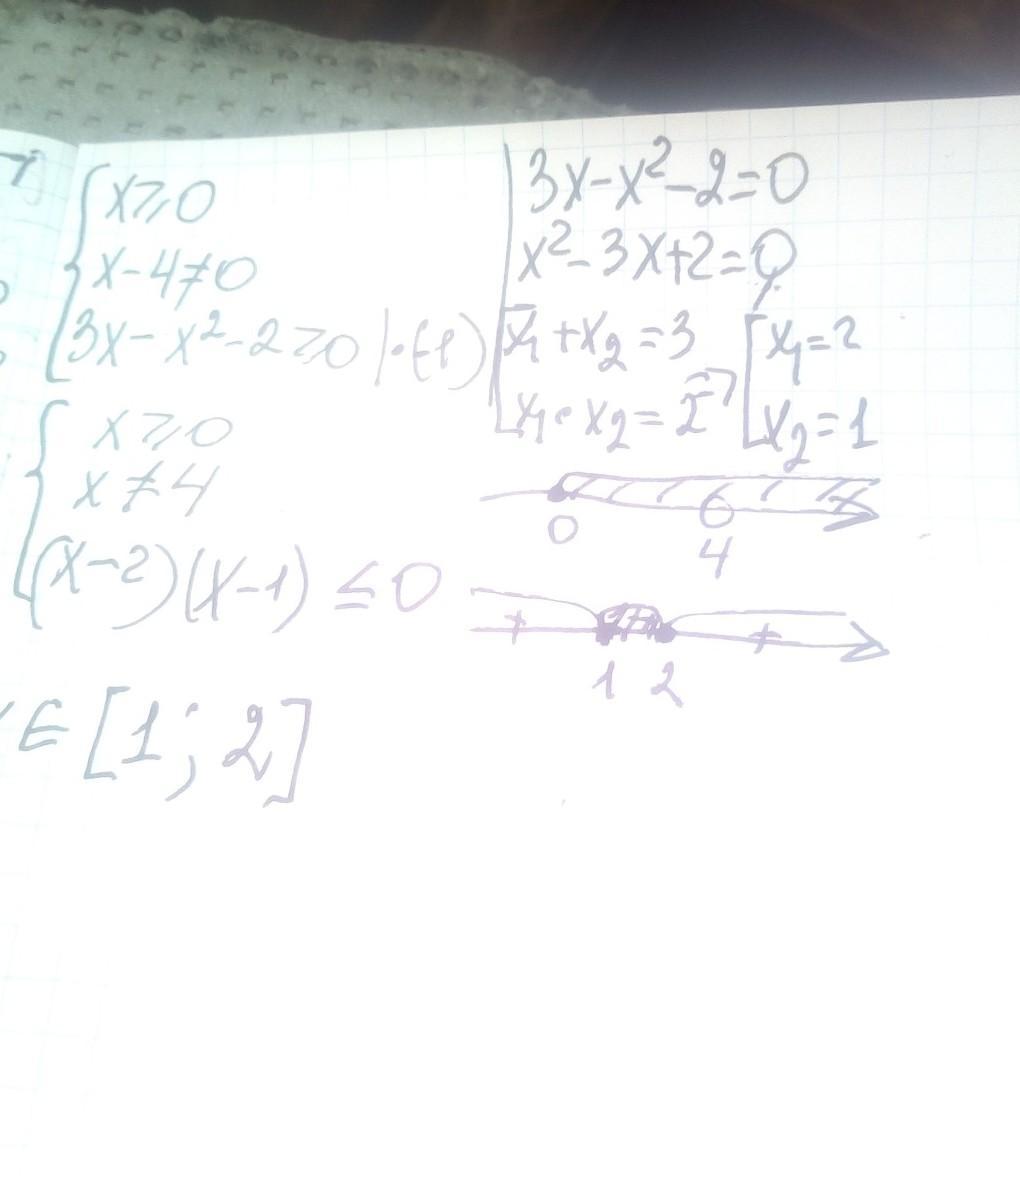 7)
x⩾0
x-4≠0
3x-x²-2⩾0 |·(-1)
3x-x²-2=0
x²-3x+2=0
x₁+x₂=3
x₁·x₂=2
x₁=2
x₂=1
x⩾0
x≠4
(x-2)(x-1)≤0
0 4
+ +
1 2
x∈[1;2]